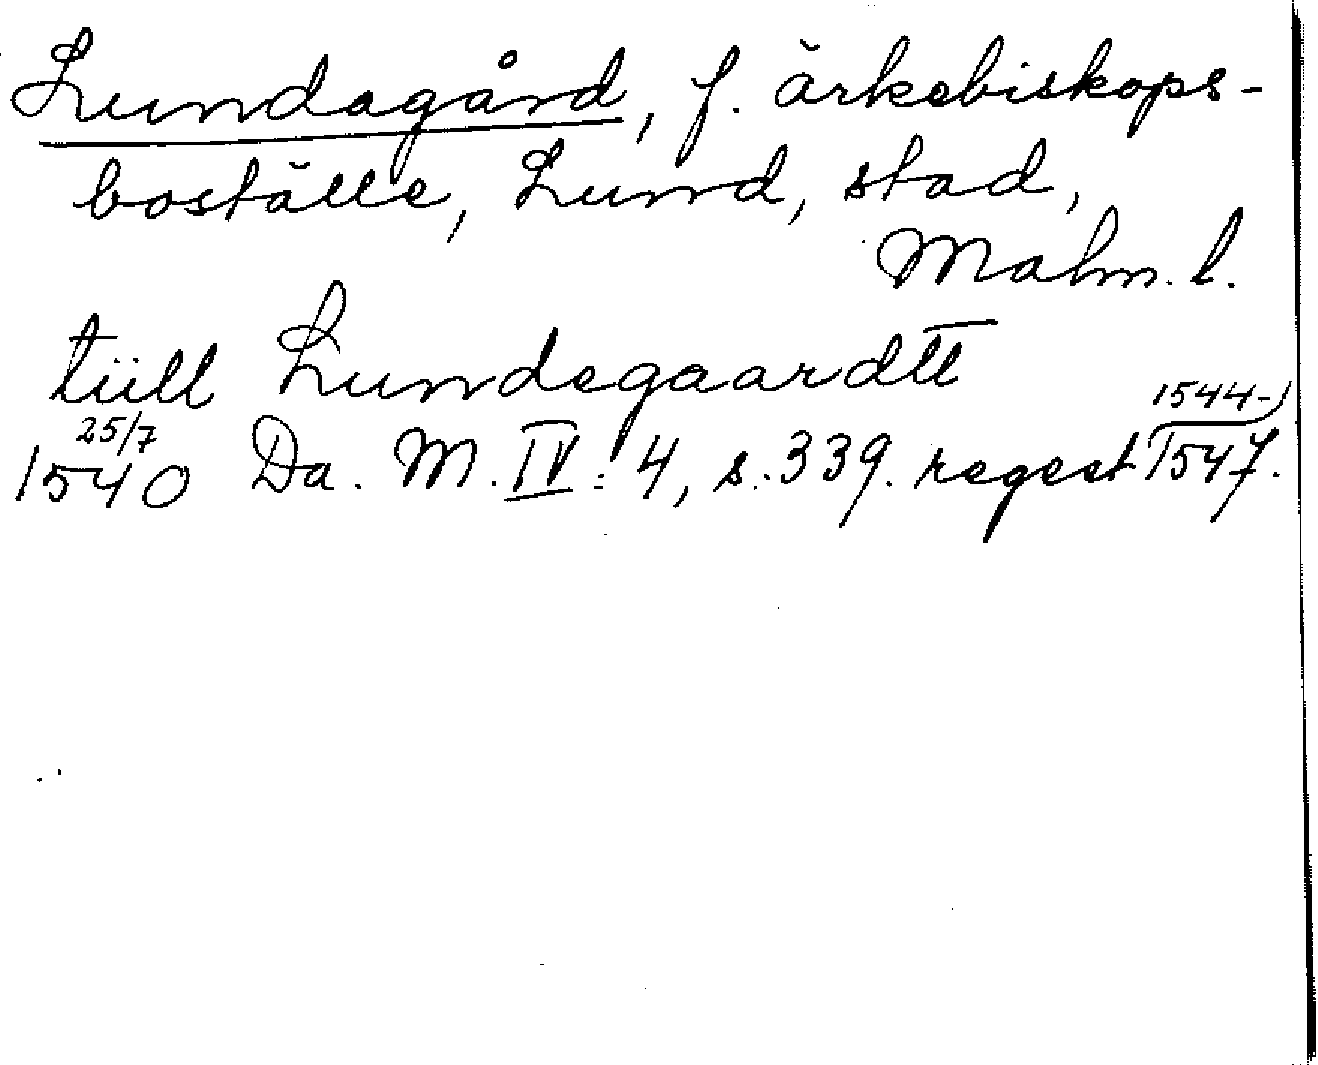 Lundagård, f. ärkebiskops-
boställe, Lund, stad,
Malm. l.
tüll Lundegaardtt
1540 25/7 Da. M. IV: 4, s. 339. regest 1544-1547.